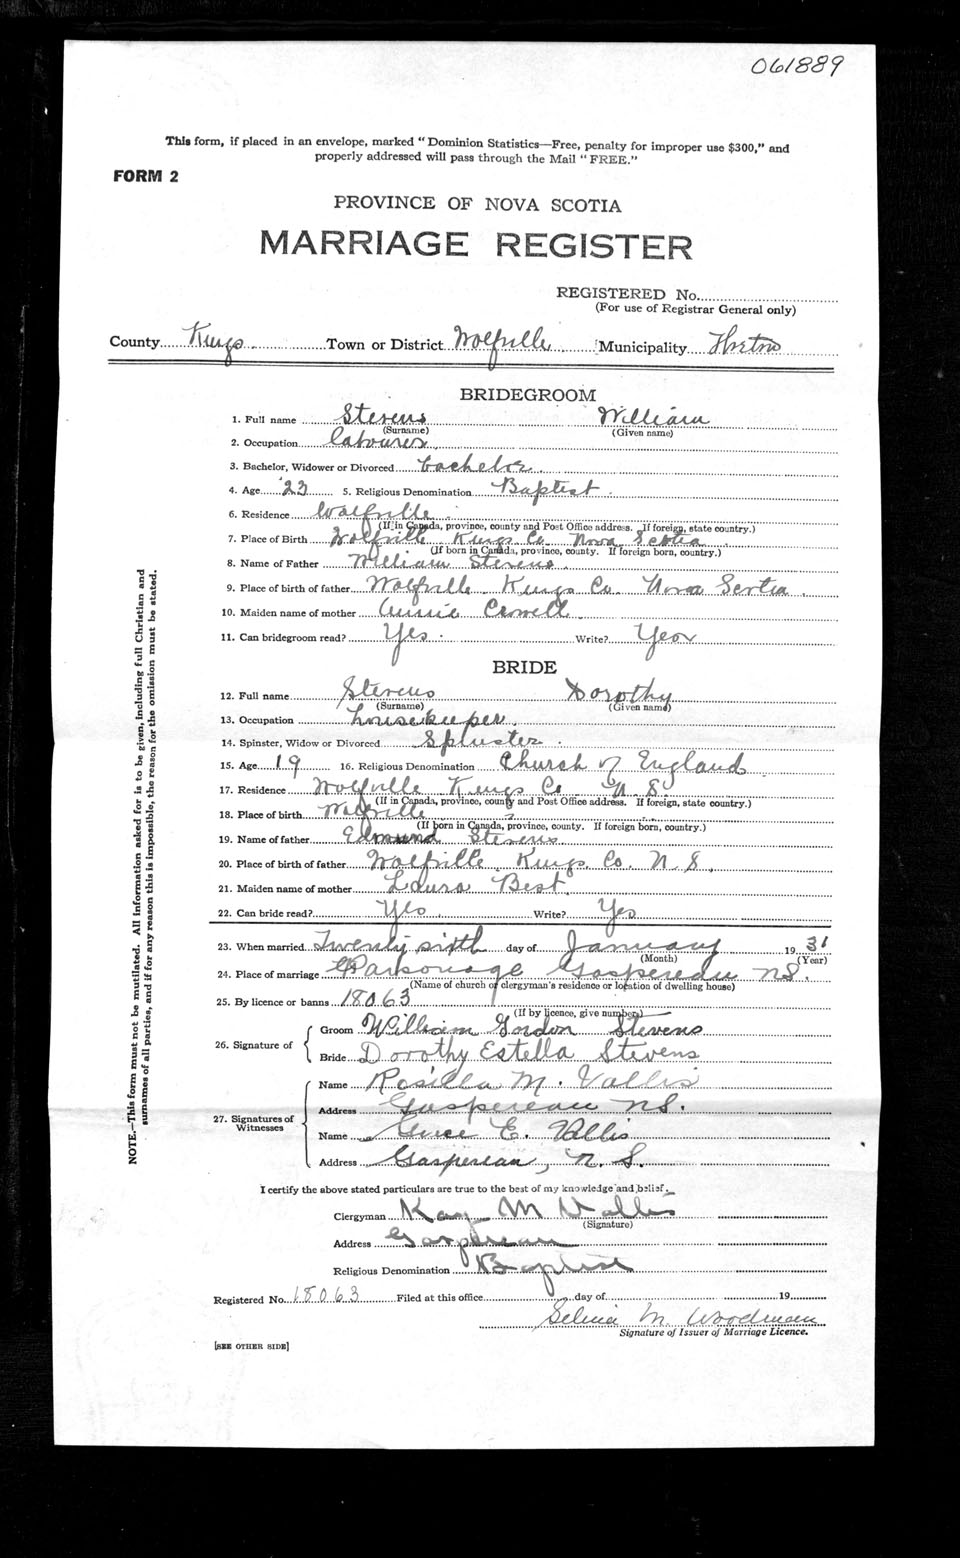 061889
This form, if placed in an envelope, marked "Dominion Statistics—Free, penalty for improper use $300," and
properly addressed will pass through the Mail "FREE."
FORM 2
PROVINCE OF NOVA SCOTIA
MARRIAGE REGISTER
REGISTERED No.
(For use of Registrar General only)
County Kings Town or District Wolfville Municipality Horton
BRIDEGROOM
1. Full name Stevens William
(Surname) (Given name)
2. Occupation labourer
3. Bachelor, Widower or Divorced bachelor
4. Age 23 5. Religious Denomination Baptist
6. Residence Wolfville
(If in Canada, province, county and Post Office address. If foreign, state country.)
7. Place of Birth Wolfville Kings Co. Nova Scotia
(If born in Canada, province, county. If foreign born, country.)
8. Name of Father William Stevens
9. Place of birth of father Wolfville Kings Co. Nova Scotia
10. Maiden name of mother Annie Crowell
11. Can bridegroom read? Yes. Write? Yes
BRIDE
12. Full name Stevens Dorothy
(Surname) (Given name)
13. Occupation housekeeper.
14. Spinster, Widow or Divorced Spinster.
15. Age 19 16. Religious Denomination Church of England
17. Residence Wolfville Kings Co N.S.
(If in Canada, province, county and Post Office address. If foreign, state country.)
18. Place of birth Wolfville
(If born in Canada, province, county. If foreign born, country.)
19. Name of father Edmund Stevens
20. Place of birth of father Wolfville Kings Co. N.S.
21. Maiden name of mother Laura Best
22. Can bride read? Yes. Write? Yes
23. When married Twenty sixth day of January 1931
(Month) (Year)
24. Place of marriage Parsonage Gaspereau NS.
(Name of church of clergyman's residence or location of dwelling house)
25. By licence or banns 18063
(If by licence, give number)
26. Signature of Groom William Gordon Stevens
Bride Dorothy Estella Stevens
27. Signatures of Witnesses Name Rosilla M. Vallis
Address Gaspereau NS.
Name E. Vallis
Address Gaspereau, N.S.
I certify the above stated particulars are true to the best of my knowledge and belief.
Clergyman M Vallis
(Signature)
Address Gaspereau
Religious Denomination Baptist
Registered No. 18063 Filed at this office day of 19
Selina M. Woodman
Signature of Issuer of Marriage Licence.
[SEE OTHER SIDE]
NOTE.—This form must not be mutilated. All information asked for is to be given, including full Christian and
surnames of all parties, and if for any reason this is impossible, the reason for the omission must be stated.